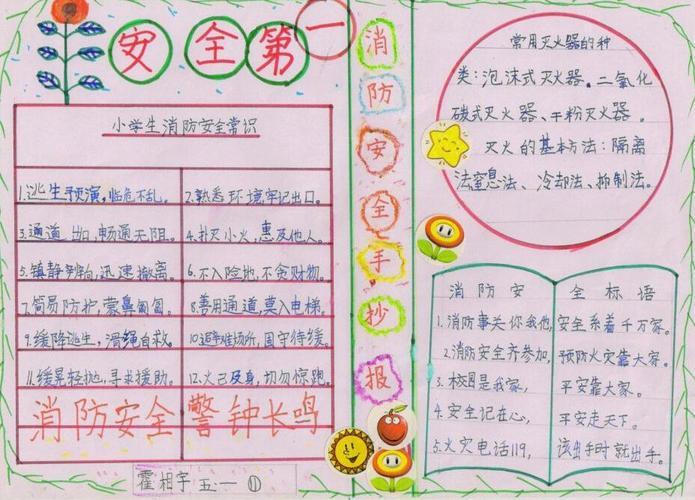 安全第一
小学生消防安全常识
1.逃生预演,临危不乱。 2.熟悉环境牢记出口。
3.通道出口,畅通无阻。 4.扑灭小火,惠及他人。
5.镇静辨向,迅速撤离。 6.不入险地,不贪财物。
7.简易防护,蒙鼻匍匐。 8.善用通道,莫入电梯。
9.缓降逃生,滑绳自救。 10.避难场所,固守待援。
11.缓晃轻抛,寻求援助。 12.火己及身,切勿惊跑。
消防安全警钟长鸣
霍相宇 五.一 ⑪
消防安全手抄报
常用灭火器的种
类:泡沫式灭火器。二氧化
碳式灭火器、干粉灭火器。
灭火的基本方法:隔离
法窒息法、冷却法、抑制法。
消防安全标语
1.消防事关你我他,安全系着千万家。
2.消防安全齐参加,预防火灾靠大家。
3.校园是我家,平安靠大家。
4.安全记在心,平安走天下。
5.火灾电话119,该出手时就出手。